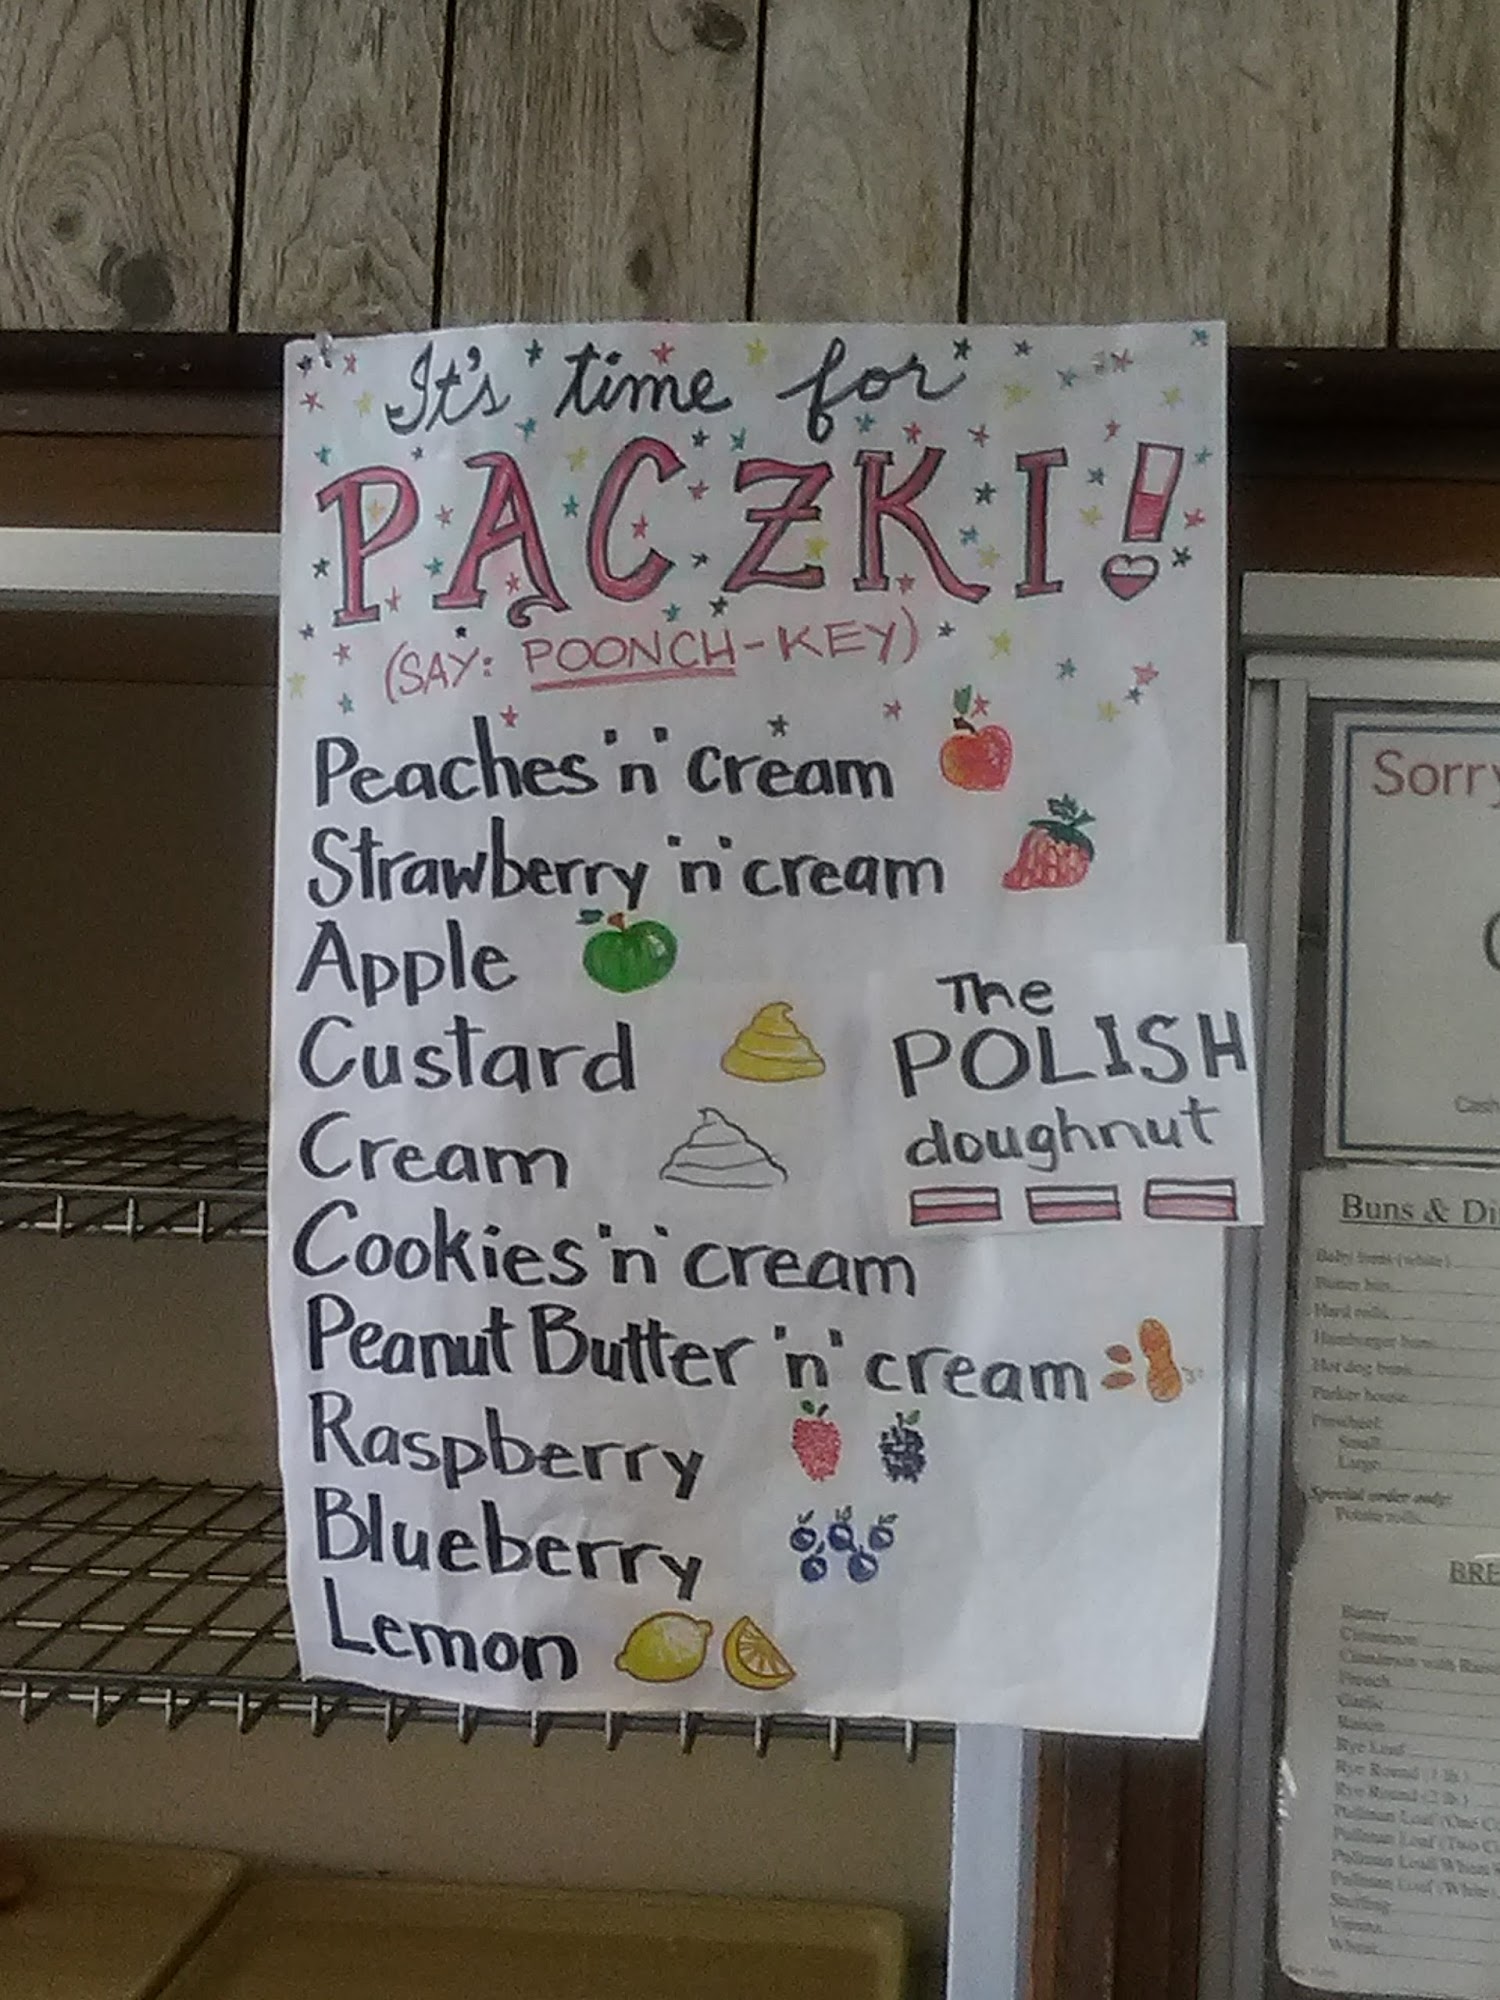 It's time for
PĄCZKI!
(SAY: POONCH-KEY)
Peaches 'n' cream
Strawberry 'n' cream
Apple
Custard
Cream
Cookies 'n' cream
Peanut Butter 'n' cream
Raspberry
Blueberry
Lemon
The
POLISH
doughnut
Sorry
Cash
Buns & Di
Baby buns (white)
Butter bun
Hard rolls
Hamburger buns
Hot dog buns
Parker house
Pinwheel:
Small
Large
Special order only:
Potato rolls
BRE
Butter
Cinnamon
Cinnamon with Rais
French
Garlic
Raisin
Rye Loaf
Rye Round (1 lb.)
Rye Round (2 lb.)
Pullman Loaf (One C
Pullman Loaf (Two C
Pullman Loaf Wheat
Pullman Loaf (White)
Stuffing
Vienna
Wheat